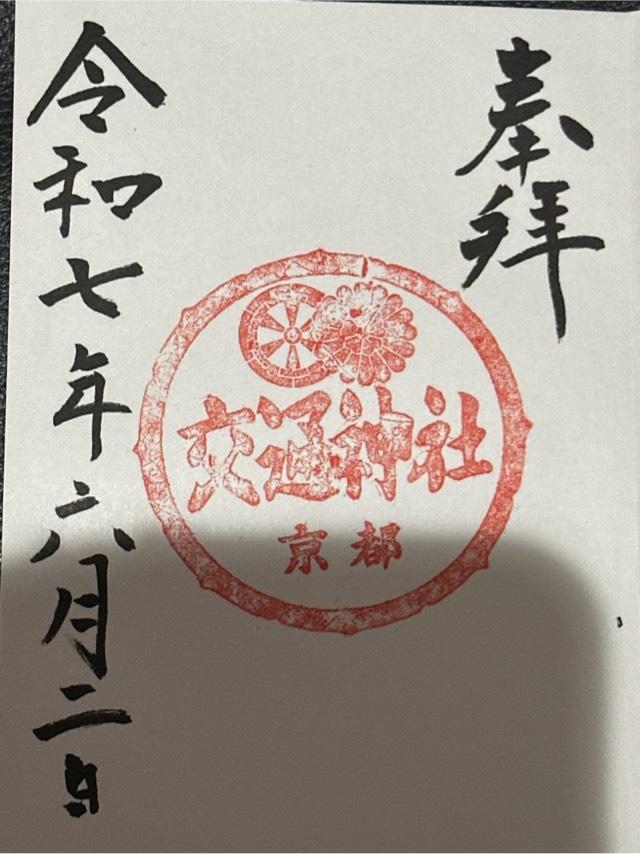 奉拝
交通神社
京都
令和七年六月二日